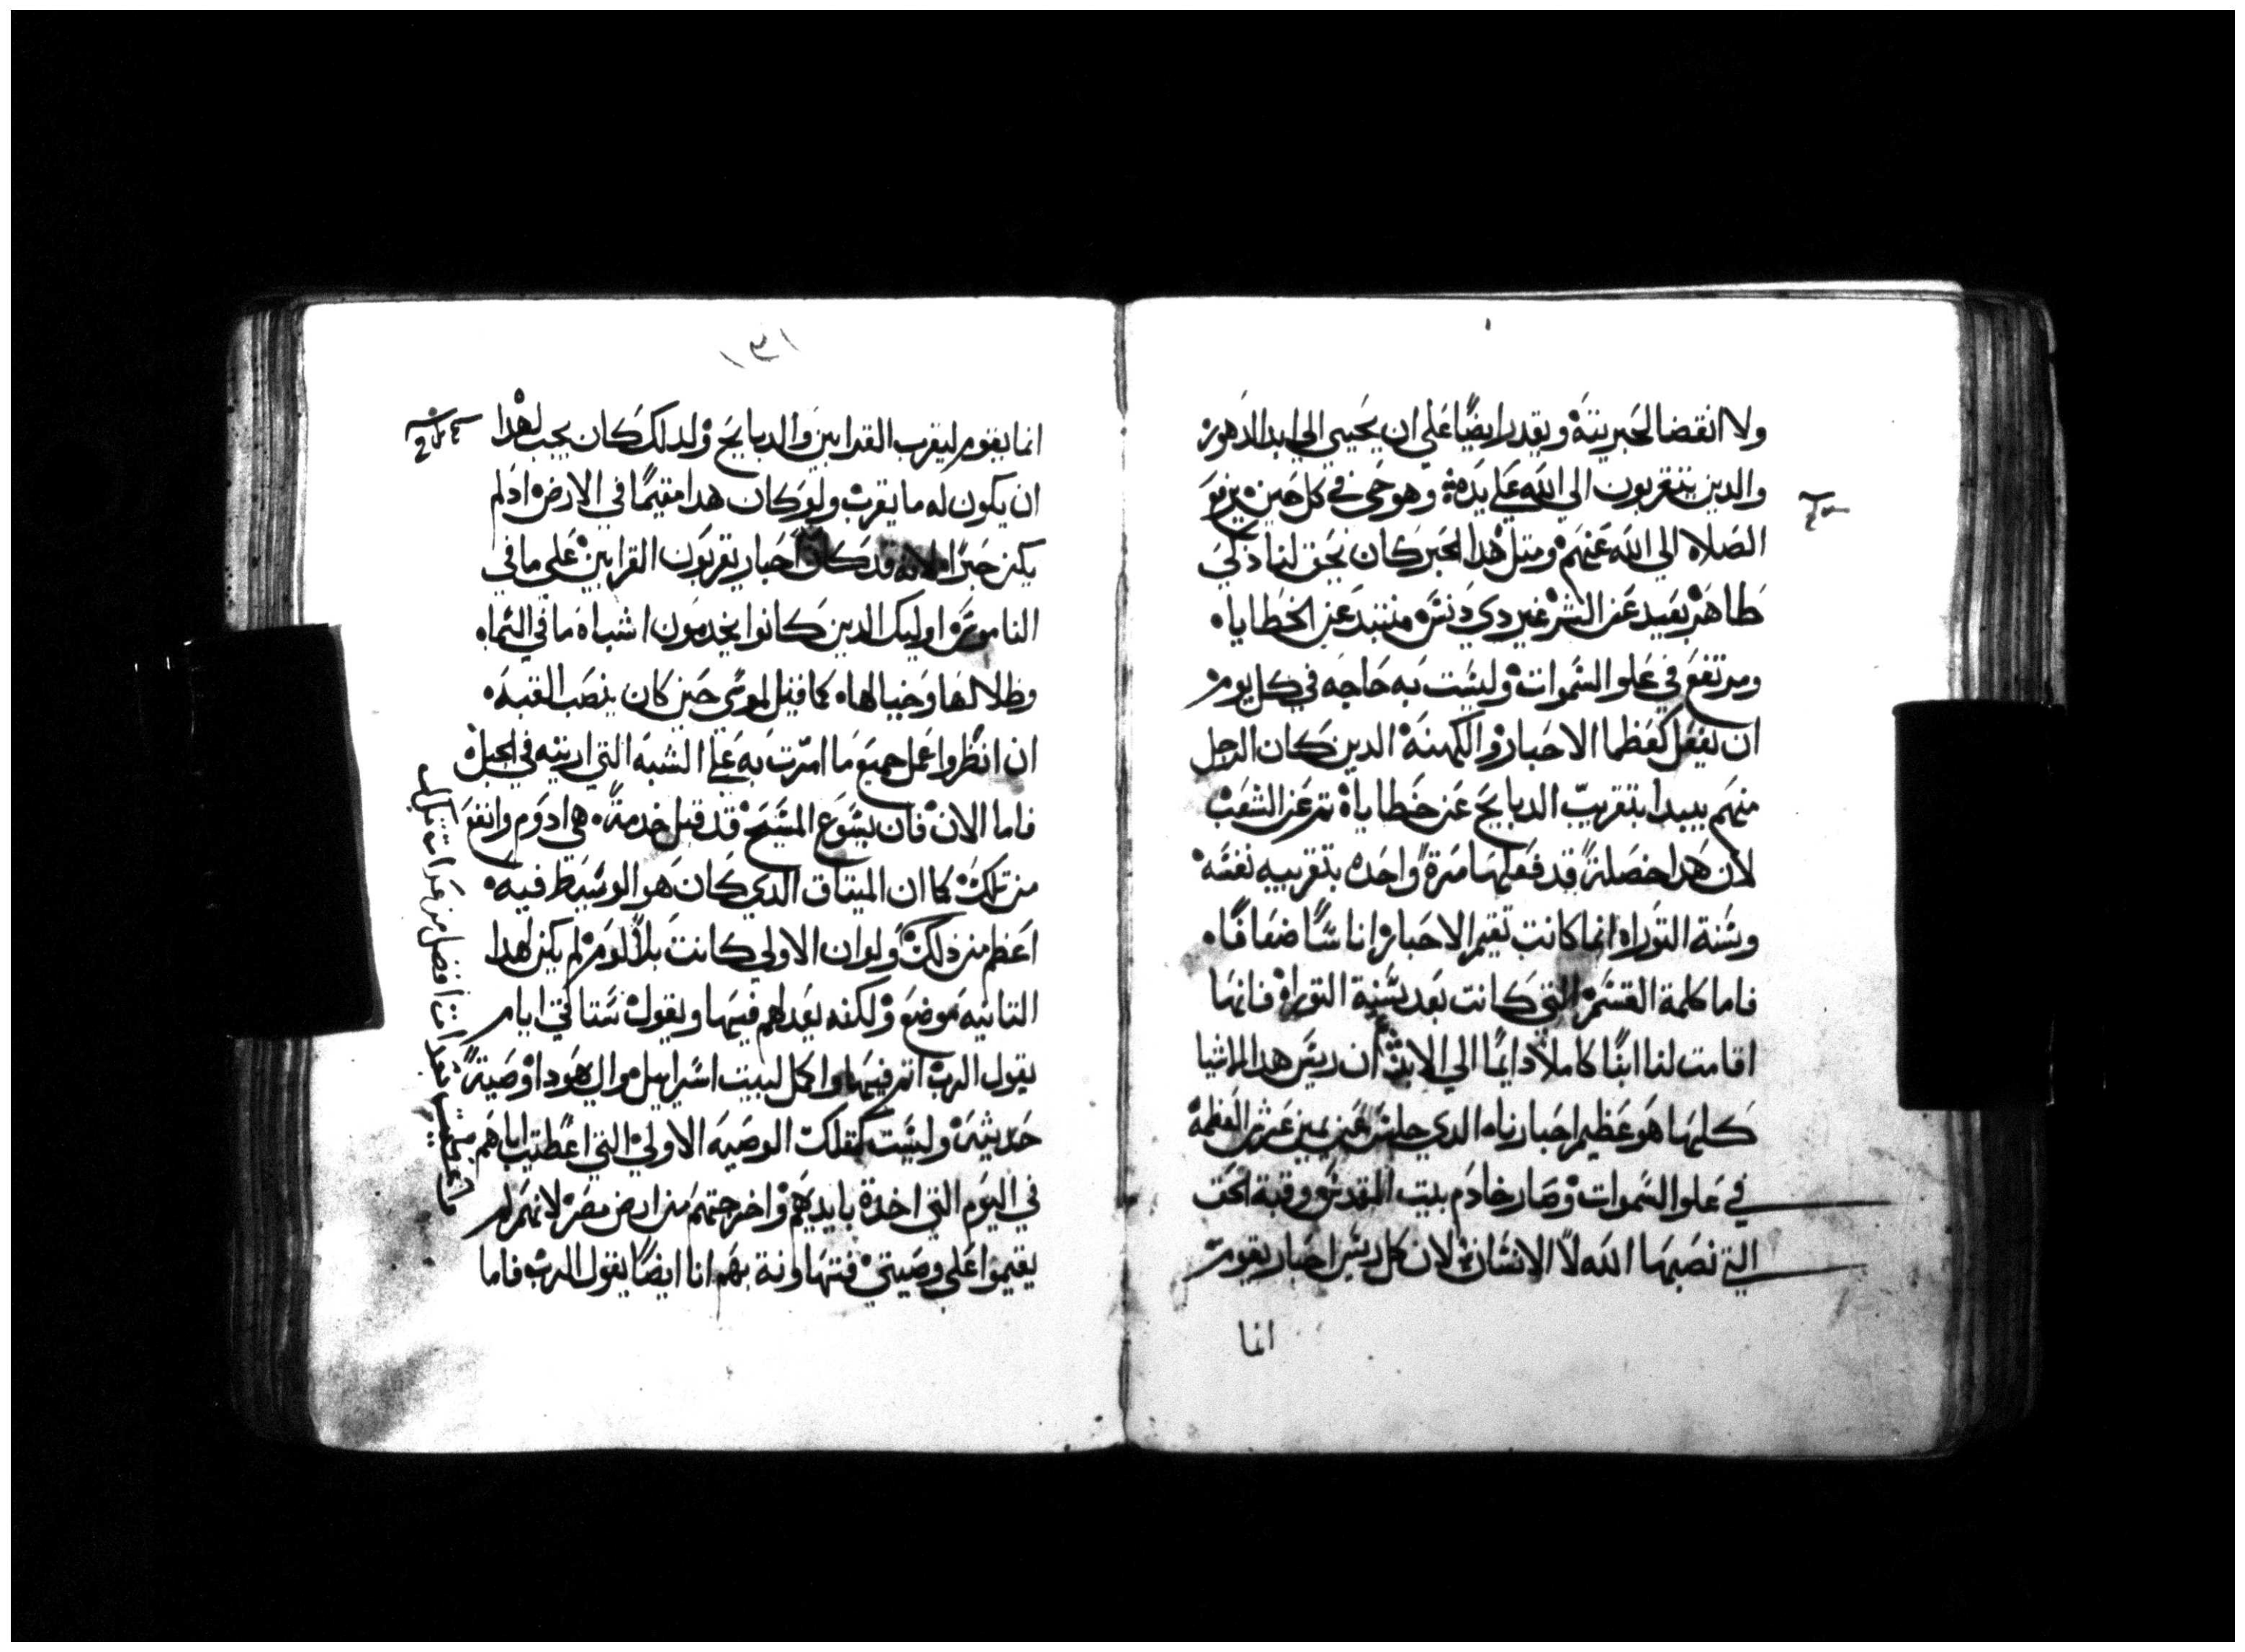 ولا انقضا لحبريتة ويقدر ايضًا علي ان يحيي الي ابد الدهور
والدين يتقربون الي الله علي يده وهو حي في كل حين يرفع
الصلاه الي الله عنهم ومتل هدا الحبر كان يحق لنا دكي
طاهر بعيد عن الشر غير دي دنس متنبد عن الخطايا
ومرتفع في علو السموات وليست به حاجه في كل يوم
ان يفعل كعظما الاحبار والكهنة الدين كان الرجل
منهم يبدا بتقريب الدبايح عن خطاياه تم عن الشعب
لان هدا خصلة قد فعلها مرة واحده بتقريبه نفسه
وسنة التوراه انما كانت تقيم الاحبار اناسًا ضعافًا
فاما كلمة القسم التي كانت بعد سنة التوراه فانها
اقامت لنا ابنًا كاملا دايمًا الي الابد ان ريس هدا الاشيا
كلها هو عظيم احبارنا الدي جلس عن يمين عرش العظمة
في علو السموات وصار خادم بيت المقدس وقبة الحق
التي نصبها الله لا الانسان لان كل ريس احبار يقوم
انما
١٣١
انما يقوم ليقرب القرابين والدبايح ولدلك كان يجب لهدا
ان يكون له ما يقرب ولو كان هدا مقيمًا في الارض ادلم
يكن حبرًا لانه قد كان احبار يقربون القرابين علي ما في
الناموس اوليك الدين كانوا يخدمون اشباه ما في السما
وظلالها وخيالها كما قيل لموسي حين كان ينصب القبه
ان انظر واعمل جميع ما امرت به علي الشبه التي اريته في الجبل
فاما الان فان يسوع المسيح قد قبل خدمة هي ادوم وانفع
من تلك كما ان الميتاق الدي كان هو الوسيط فيه
اعظم من دلك ولو ان الاولي كانت بلا لوم لم يكن لهدا
التانيه موضع ولكنه يعدلهم فيها ويقول ستاتي ايام
يقول الرب اتم فيها واكمل لبيت اسراييل وال يهودا وصية
حديثه وليست كتلك الوصيه الاولي التي اعطيت اباهم
في اليوم التي اخدة بايديهم واخرجتهم من ارض مصر لانهم لم
يقيموا علي وصيتي فتهاونة بهم انا ايضًا يقول الرب فاما